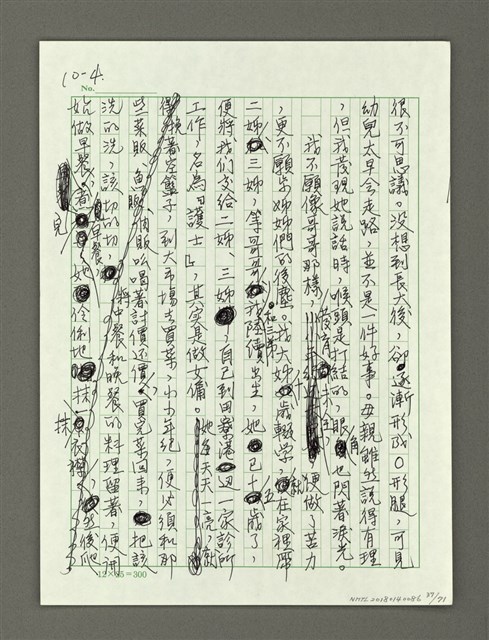 10-4.
No.
很不可思議。沒想到長大後，卻逐漸形成O形腿，可見
幼兒太早会走路，並不是一件好事。母親雖然說得有理
，但我發現她說話時，喉頭是打結的，眼角也閃著淚光。
我不願像哥哥那樣，便做了苦力
，更不願步姊姊們的後塵。我大姊十歲輟學，就在家裡帶
二姊、三姊，等哥哥和我陸續出生，她已十五歲了，
便將我们交給二姊、三姊，自己到田寮港邊一家診所
工作，名為「護士」，其實是做女傭。她每天天一亮就
得挽著空籃子，到大市場去買菜，小小年紀，便必須和那
些菜販、魚販、肉販吆喝著討價还價。買完菜回來，把該
洗的洗，該切的切，將中餐和晚餐的料理留著，便開
始做早餐。早餐 她 伶俐地 抹 然後爬
12×25=300
NMTL20280140086 37/71